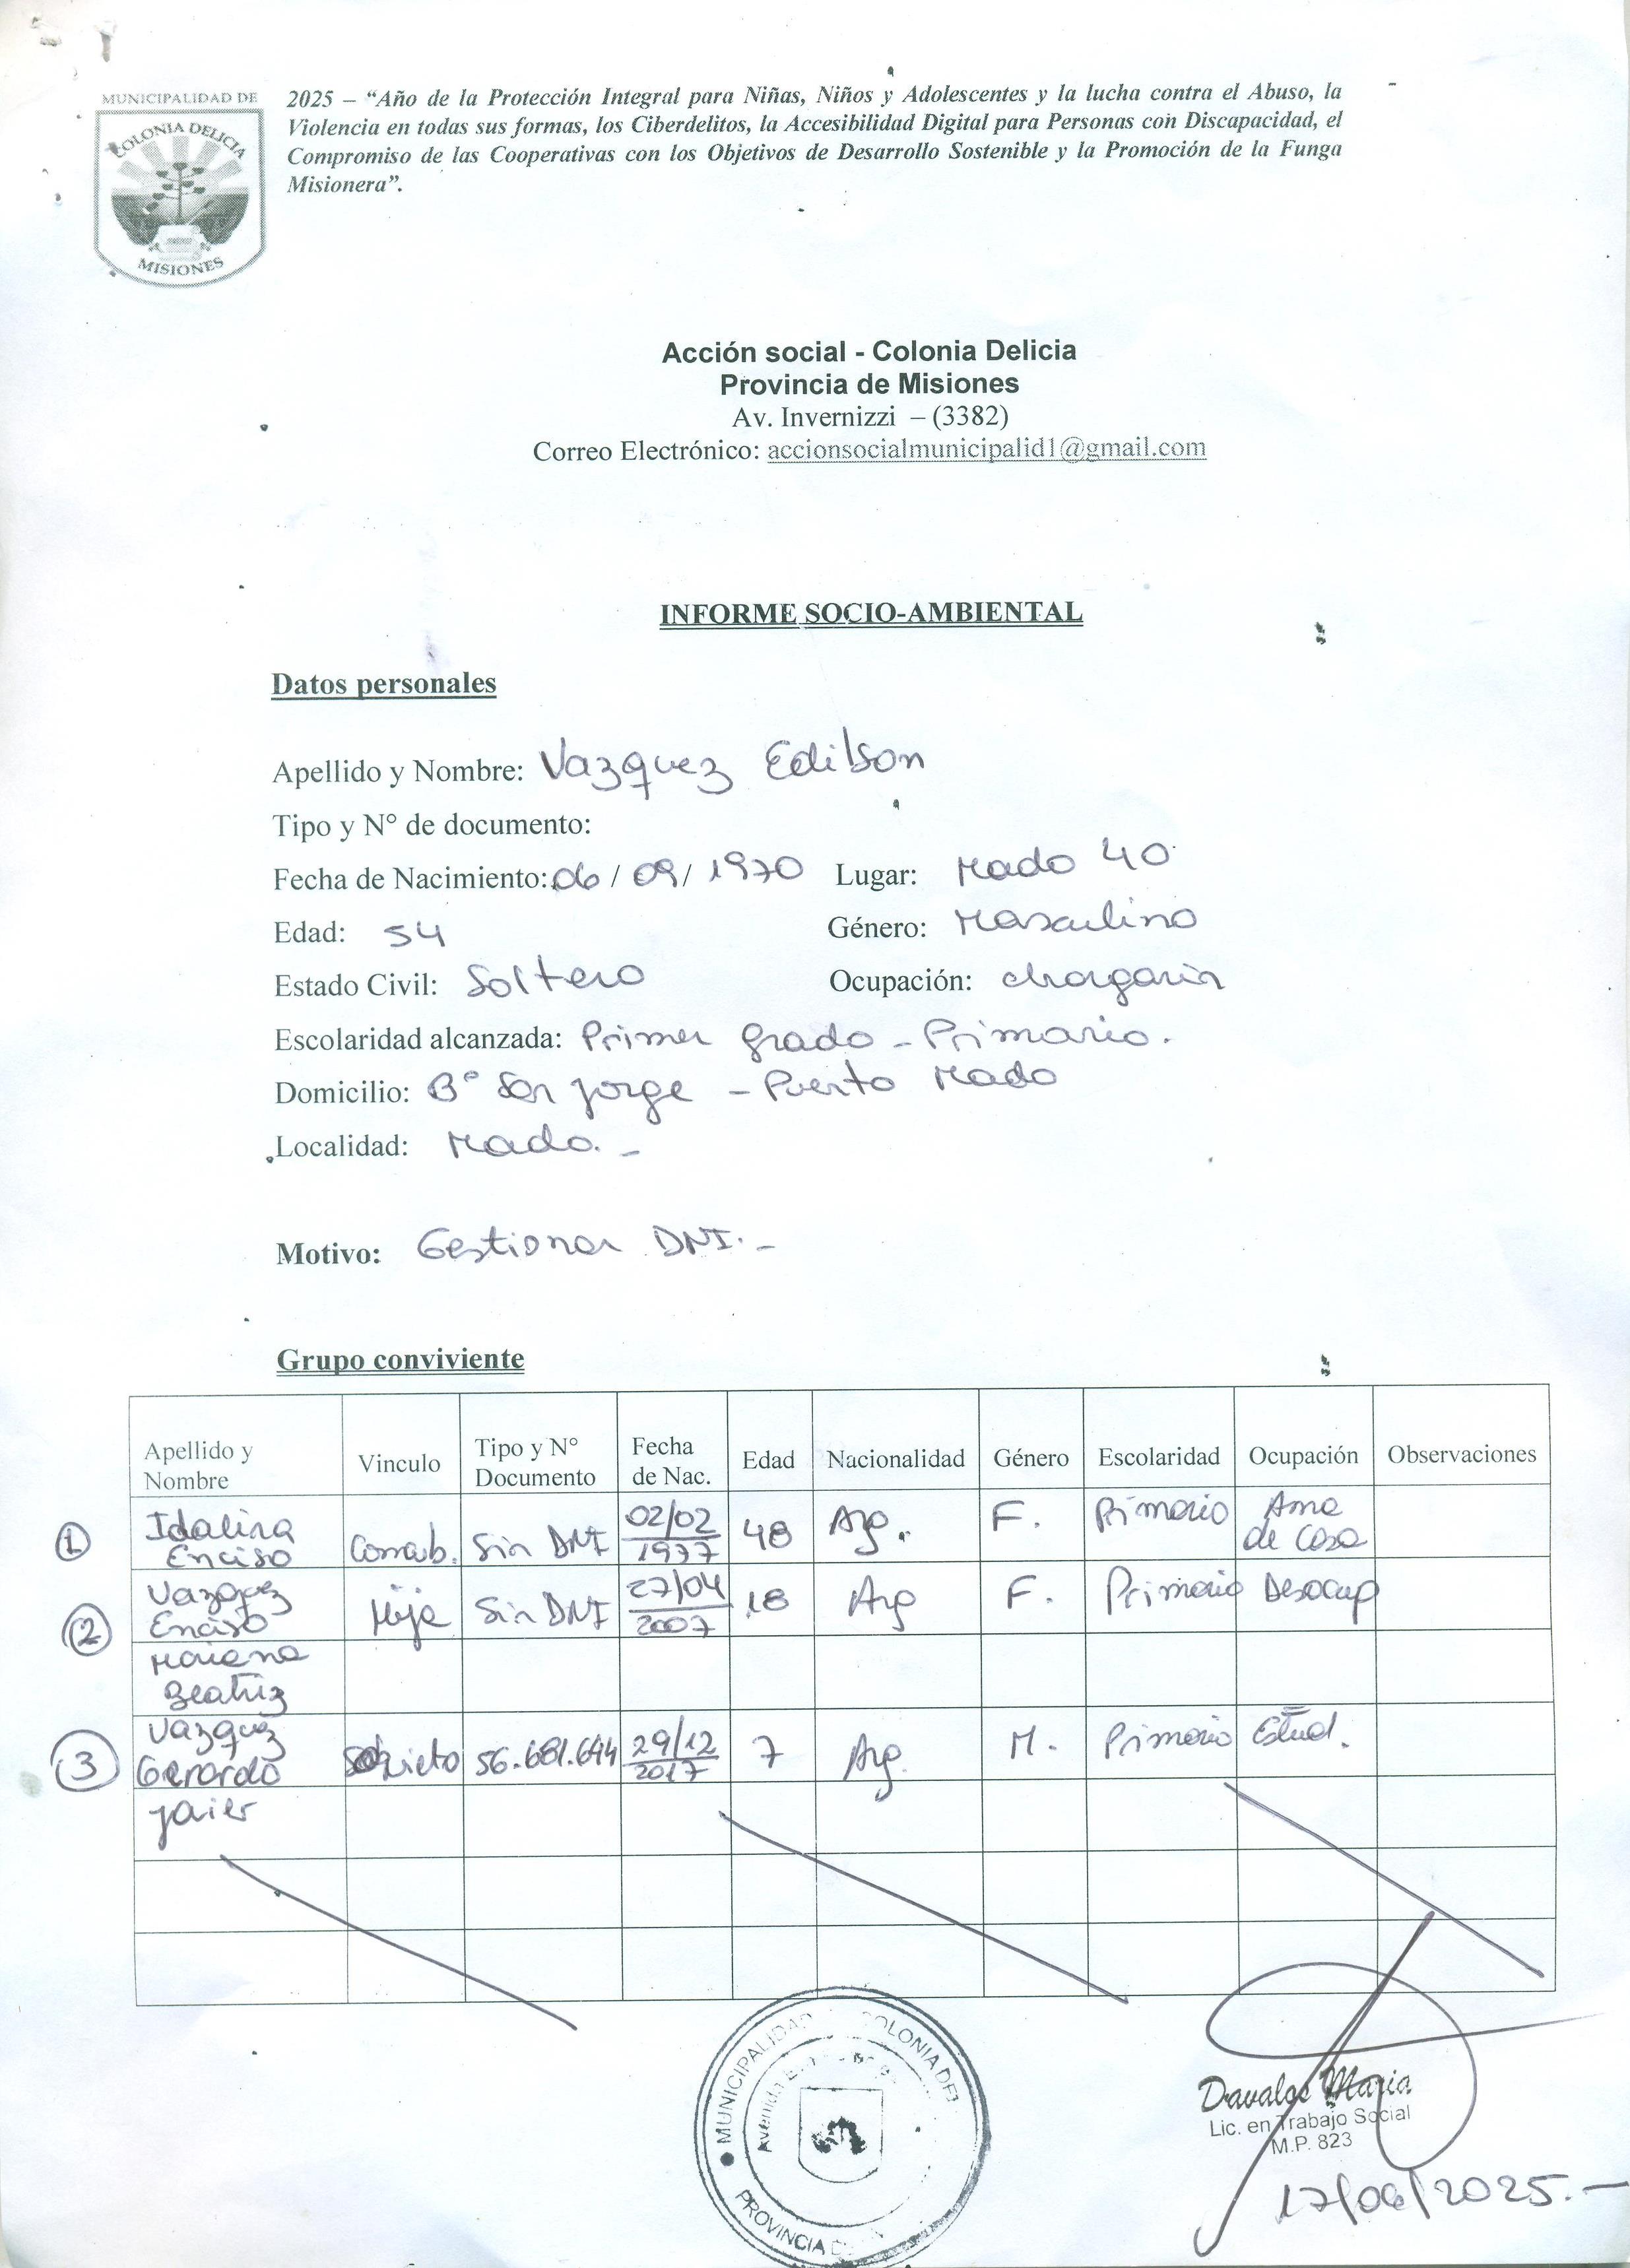 MUNICIPALIDAD DE
COLONIA DELICIA
MISIONES
2025 – “Año de la Protección Integral para Niñas, Niños y Adolescentes y la lucha contra el Abuso, la
Violencia en todas sus formas, los Ciberdelitos, la Accesibilidad Digital para Personas con Discapacidad, el
Compromiso de las Cooperativas con los Objetivos de Desarrollo Sostenible y la Promoción de la Funga
Misionera”.
Acción social - Colonia Delicia
Provincia de Misiones
Av. Invernizzi – (3382)
Correo Electrónico: accionsocialmunicipalid1@gmail.com
INFORME SOCIO-AMBIENTAL
Datos personales
Apellido y Nombre: Vazquez Edilson
Tipo y N° de documento:
Fecha de Nacimiento: 06 / 09 / 1970 Lugar: Mado 40
Edad: 54 Género: Masculino
Estado Civil: Soltero Ocupación: changarin
Escolaridad alcanzada: Primer grado - Primario.
Domicilio: B° San Jorge - Puerto Mado
Localidad: Mado. -
Motivo: Gestionar DNI. -
Grupo conviviente
Apellido y Nombre Vinculo Tipo y N° Documento Fecha de Nac. Edad Nacionalidad Género Escolaridad Ocupación Observaciones
1 Idalina Enciso Concub. Sin DNI 02/02 1977 48 Arg. F. Primario Ama de Casa
2 Vazquez Enciso Hija Sin DNI 27/04 2007 18 Arg F. Primario Desocup
Mariana Beatriz
3 Vazquez Gerardo 56.681.644 29/12 2017 7 Arg. M. Primario Estud.
Javier
MUNICIPALIDAD COLONIA DEL
Avenida
PROVINCIA DE
Davalos Maria
Lic. en Trabajo Social
M.P. 823
17/06/2025.-